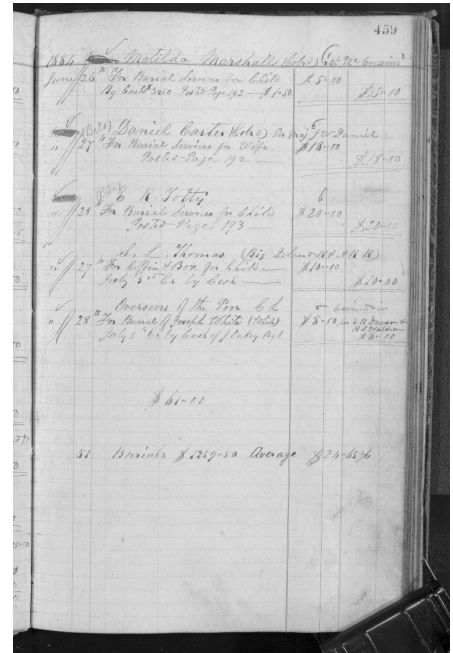 459
1884 Matilda Marshall (Col'd)
June 26th For Burial Services for Child $5-00
By Cash 3.50 Posted Page 192 - $1-50 $5-00
Daniel Carter (Col'd) Per Maj J W Daniel
" 27th For Burial Services for Wife $18-00
Posted-Page 192 $18-00
C. R. Totty
" 28 For Burial Services for Child $20-00
Posted-Page 193 $20-00
S. L. Thomas
" 27th For Coffin & Box for Child $10-00
July 3rd Cr by Cash $10-00
Overseers of the Poor C.H.
" 28th For Burial of Joseph White (White) $8-00
July 5th Cr by Cash of J Agt $8-00
$61-00
51 Burials $1259-50 Average